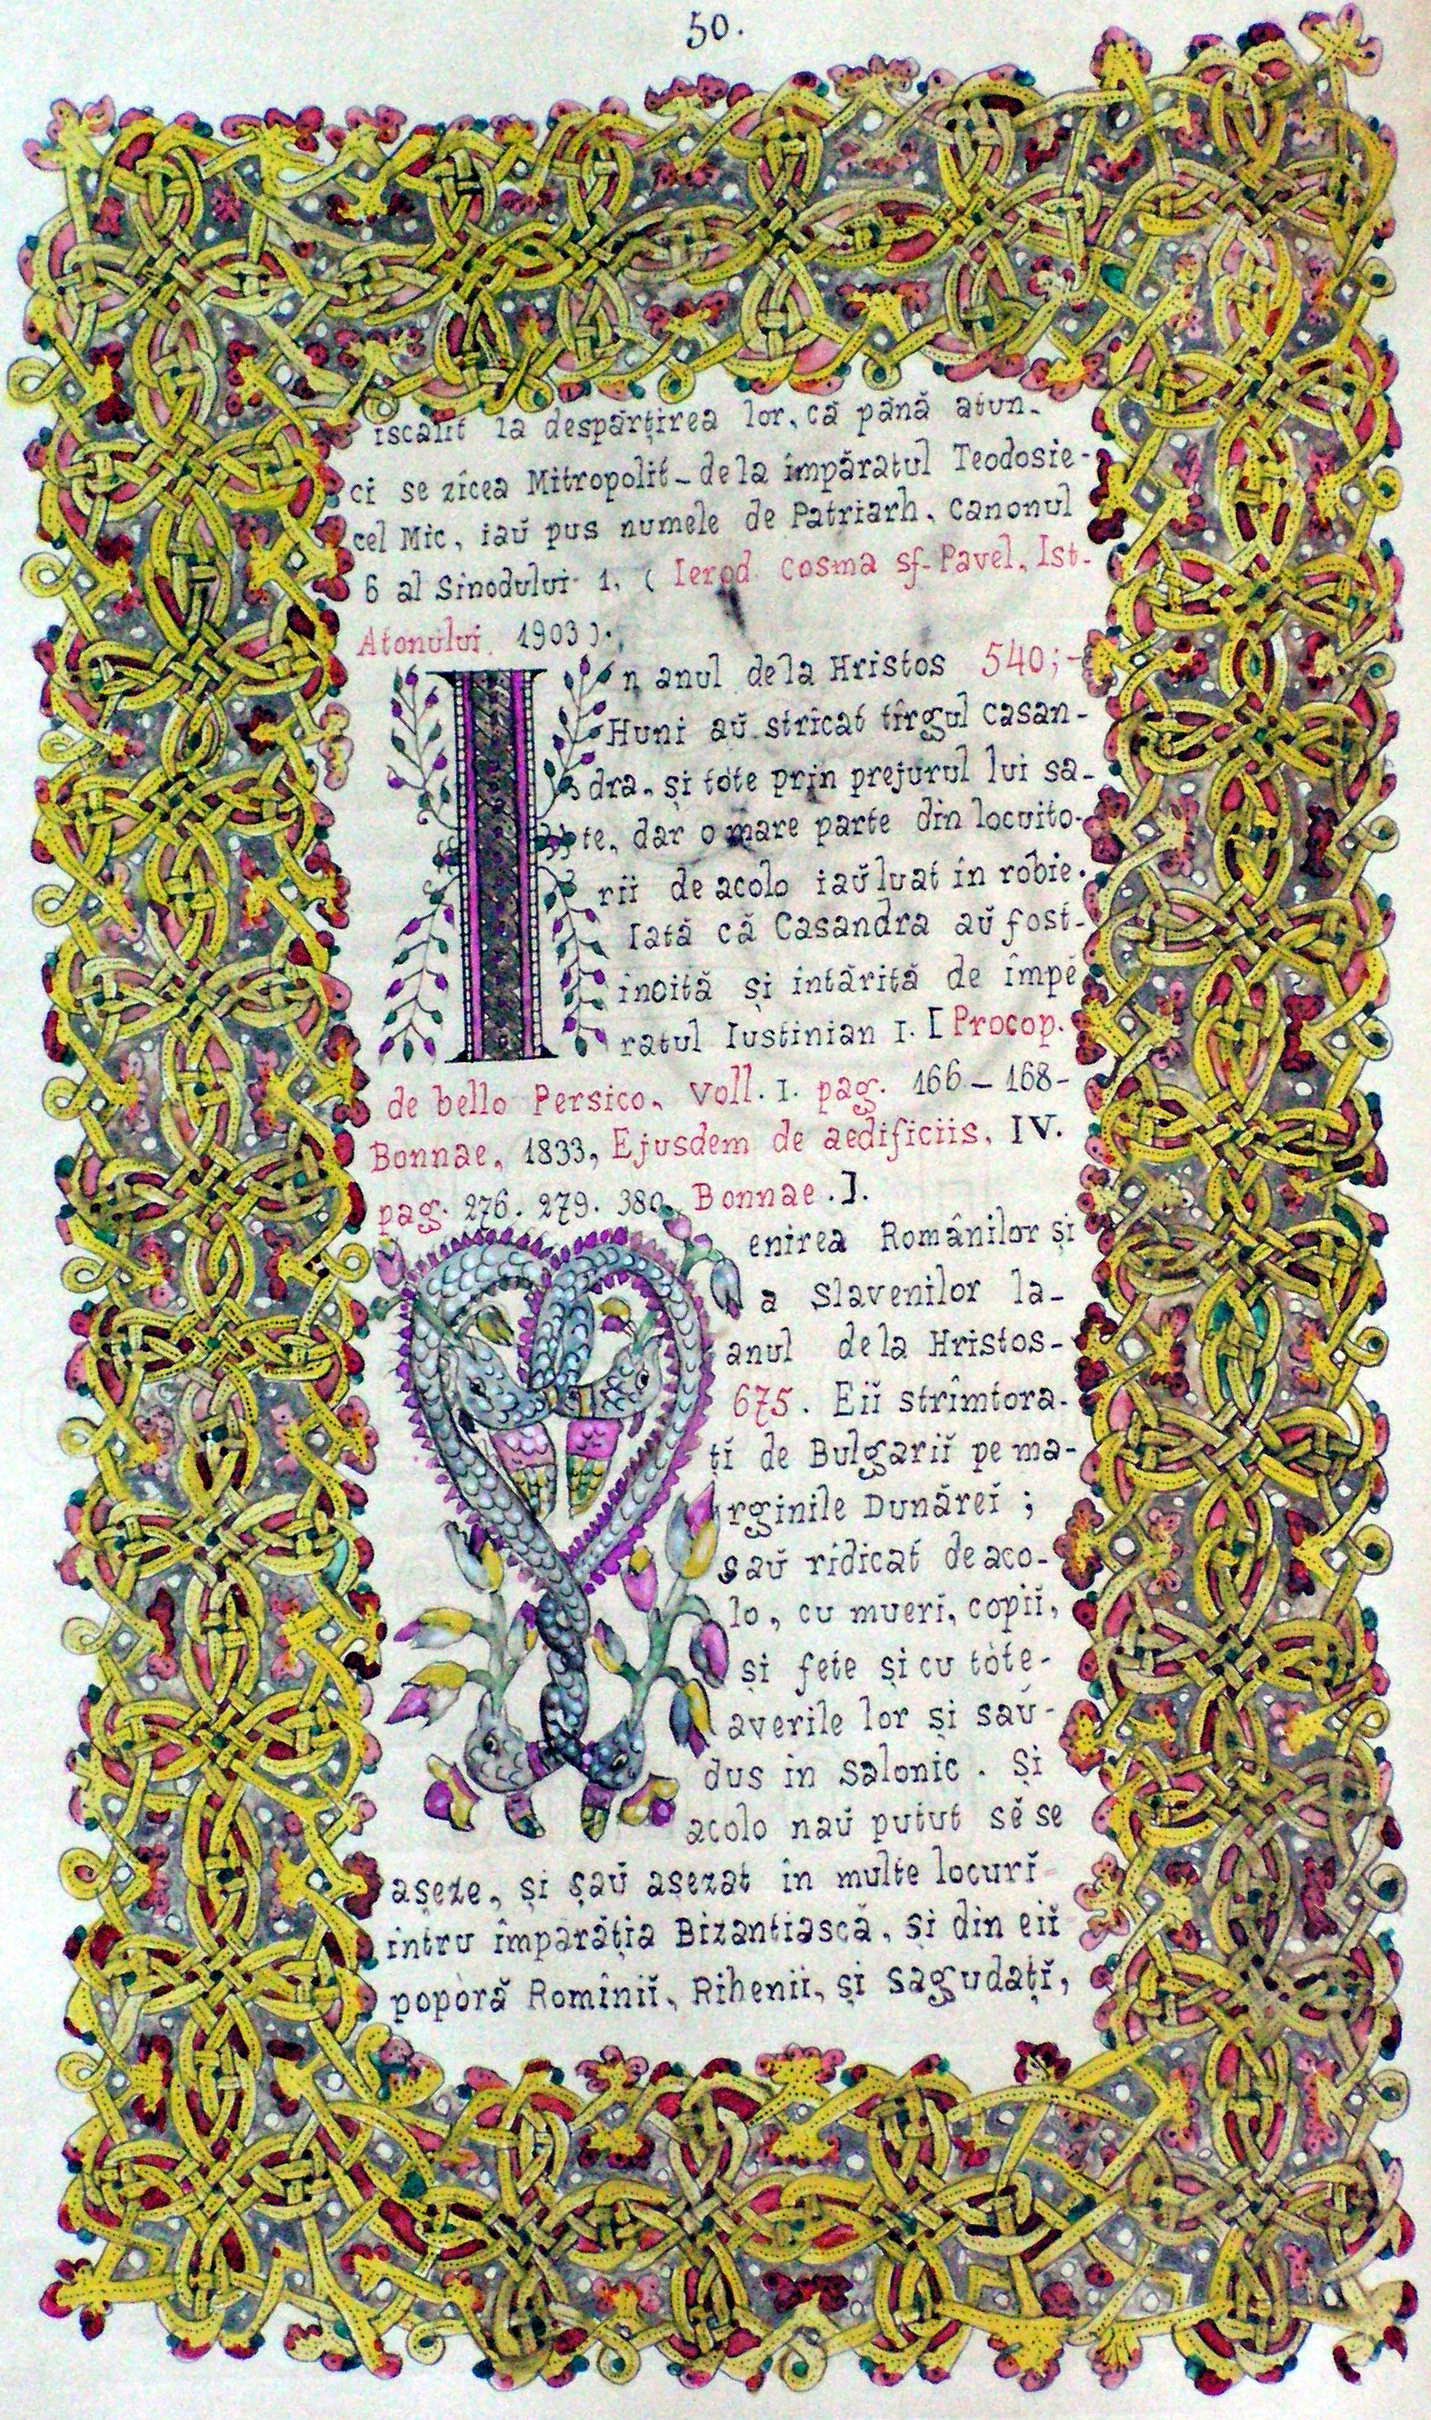 50.
iscalit la despărțirea lor, că până atun-
ci se zîcea Mitropolit - dela împăratul Teodosie-
cel Mic, iaŭ pus numele de Patriarh. Canonul
6 al Sinodului 1. ( Ierod. Cosma sf. Pavel. Ist.
Atonului. 1903 ).
In anul dela Hristos 540;-
Huni aŭ stricat tîrgul Casan-
dra. și tote prin prejurul lui sa-
te, dar o mare parte din locuito-
rii de acolo iaŭ luat în robie.
Iată că Casandra aŭ fost-
inoită și intărită de împĕ
ratul Iustinian I. [ Procop.
de bello Persico. Voll. I. pag. 166 – 168-
Bonnae. 1833, Ejusdem de aedificiis. IV.
pag. 276. 279. 380. Bonnae.].
enirea Românilor și
a Slavenilor la-
anul dela Hristos-
675. Eiĭ strîmtora-
țĭ de Bulgariĭ pe ma-
rginile Dunăreĭ ;
saŭ ridicat de aco-
lo, cu muerĭ, copiĭ,
și fete și cu tòte-
averile lor și saŭ-
dus in Salonic. Și
acolo naŭ putut sĕ se
așeze, și saŭ așezat în multe locurĭ
intru împărăția Bizantiască. și din eiĭ
poporă Romîniĭ, Riheniĭ, și Sagudațĭ,